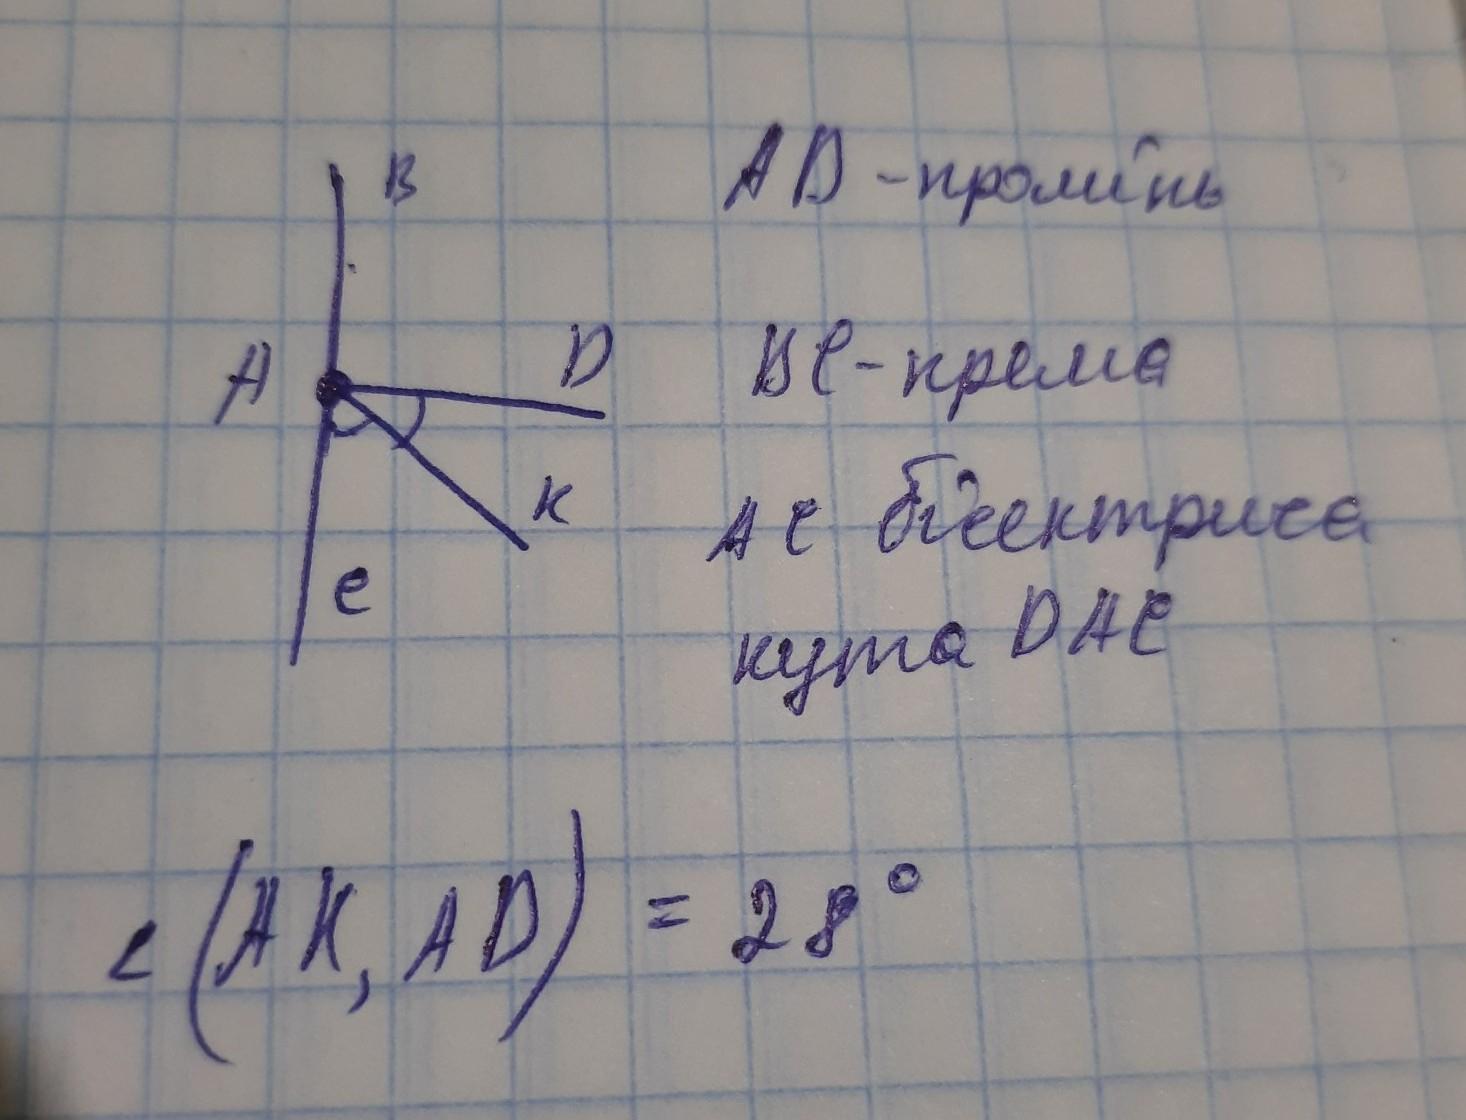 B
AD - промінь
A
D
BC - према
K
AC бісектриса
C
кута DAC
∠(AK, AD) = 28°